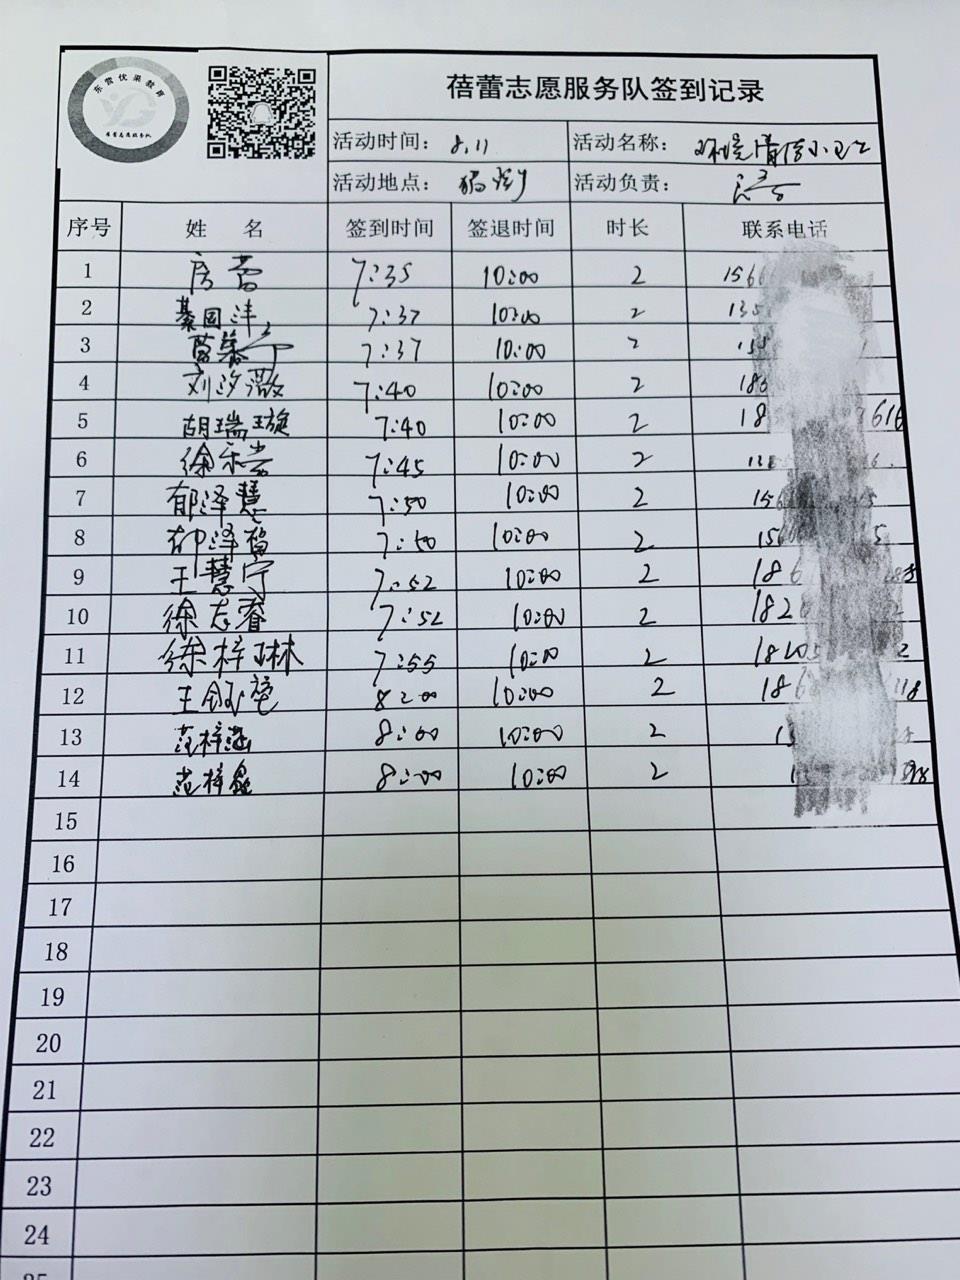 东营优果教育
蓓蕾志愿服务队
蓓蕾志愿服务队签到记录
活动时间： 8.11 活动名称： 环境清洁小卫士
活动地点： 活动负责：
序号 姓 名 签到时间 签退时间 时长 联系电话
1 房蕾 7:35 10:00 2 156
2 綦国沣 7:37 10:00 2 135
3 7:37 10:00 2
4 刘汐薇 7:40 10:00 2 186
5 胡瑞璇 7:40 10:00 2 18 616
6 徐 7:45 10:00 2
7 郁泽慧 7:50 10:00 2 156
8 郁泽 7:50 10:00 2 156 5
9 王慧宁 7:52 10:00 2 186
10 徐志睿 7:52 10:00 2 182
11 徐梓琳 7:55 10:00 2 182 2
12 王 8:00 10:00 2 186 118
13 范梓涵 8:00 10:00 2
14 范梓 8:00 10:00 2
15
16
17
18
19
20
21
22
23
24
25